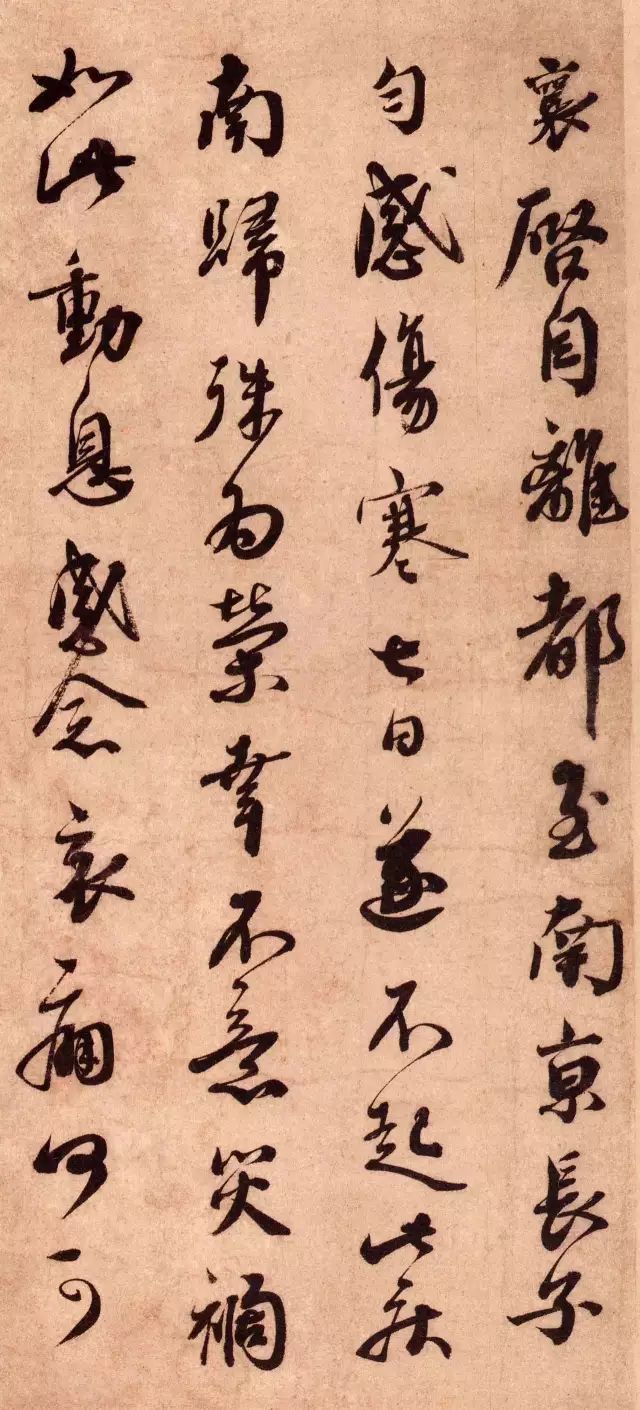 襄啓自離都至南京長子
匀感傷寒七日遂不起此疾
南歸殊為榮幸不意災禍
如此動息感念哀痛何可